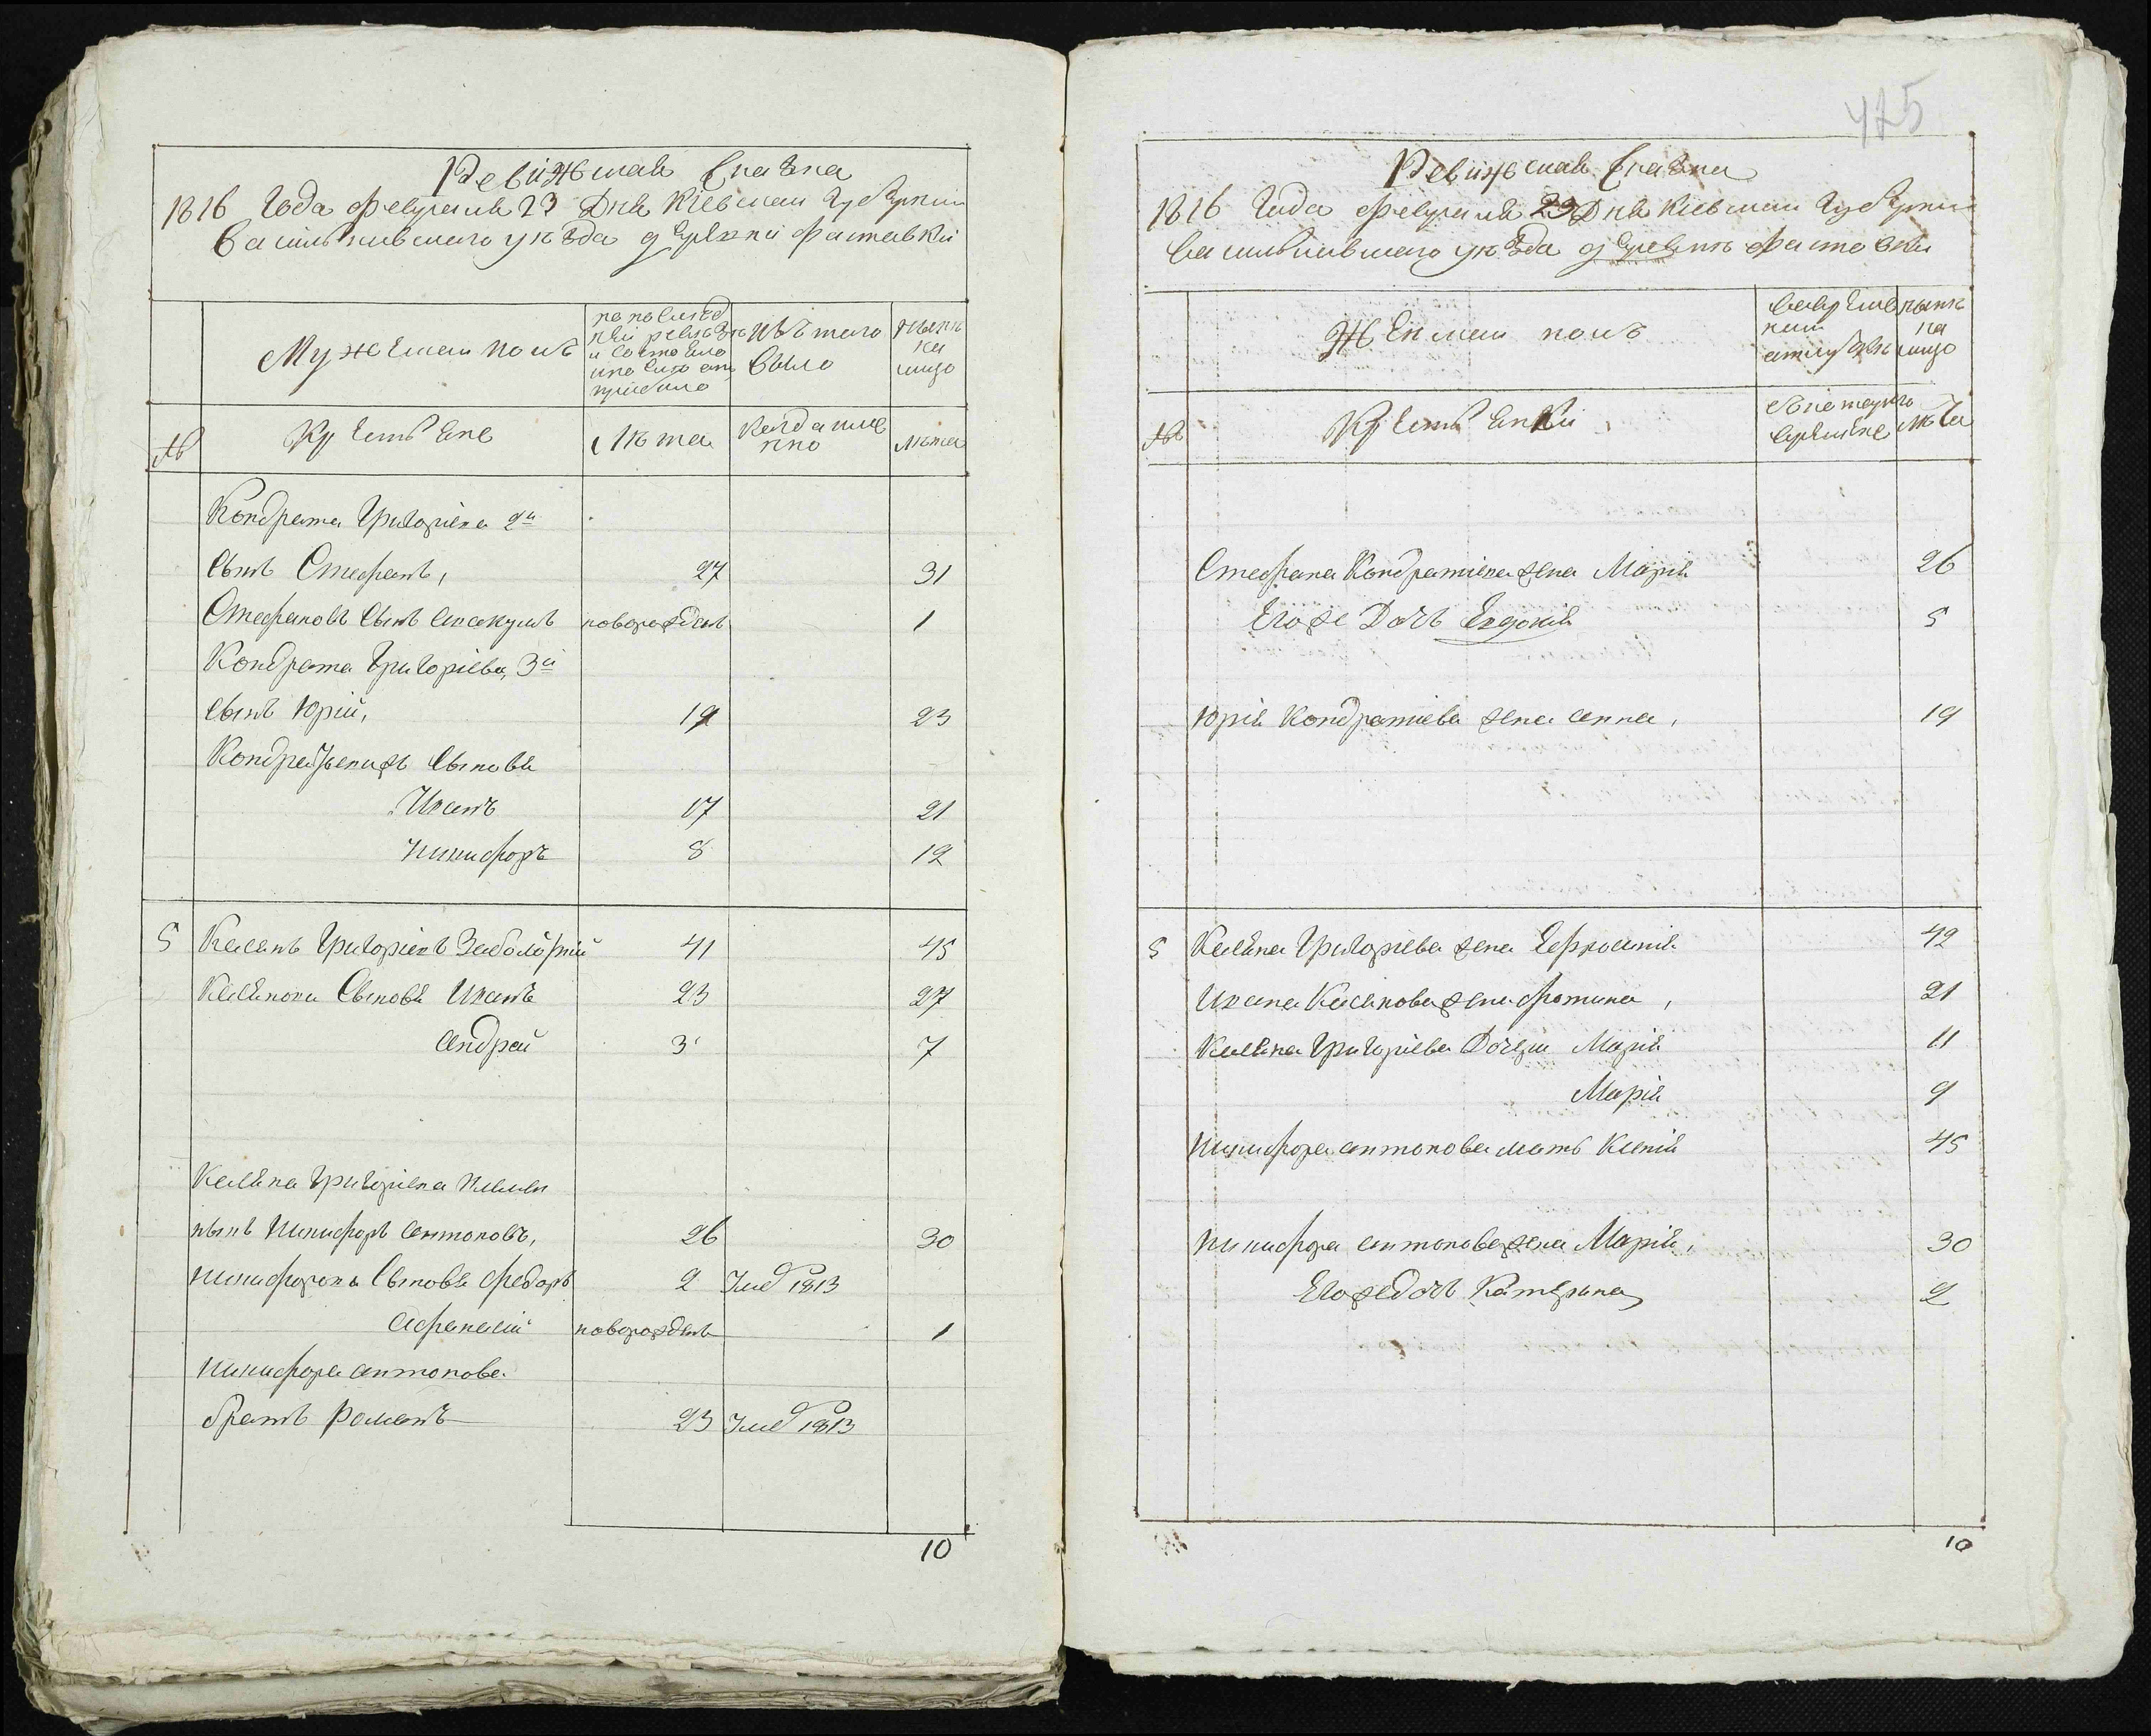 Ревижская Сказка
1816 Года февраля 23 Дня Киевской Губернии
Васильковского уезда деревни Фастовки
Мужеский полъ
по последней ревизіи состояло и после оной прибыло
Изъ того было
Ныне на лицо
№
Крестьяне
Лета
Когда именно
Лета
Кондрата Григоріева 2й
сынъ Стефанъ, 27 31
Стефановъ сынъ Авакумъ новорожденъ 1
Кондрата Григоріева, 3й
сынъ Юрій, 19 23
сыновя
Иванъ 17 21
Никифоръ 8 12
5 Касянъ Григоріевъ Заболотній 41 45
Касянови Сыновя Иванъ 23 27
Андрей 3 7
Касяна Григоріева племян
ныкъ Никифоръ Антоновъ, 26 30
Никифоровы Сыновя Федоръ 2 Умер 1813
Афанасій новорожденъ 1
Никифора Антонова
братъ Романъ 23 Умер 1813
10
475
Ревижская Сказка
1816 Года Февраля 23 Дня Киевской Губернии
Васильковского уезда деревни Фастовки
Женской полъ
ныне на лицо
№
Крестьянки
лета
Стефана Кондратіева жена Марія 26
Егоже Дочь Евдокія 5
Юрія Кондратіева жена Анна, 19
5 Касяна Григорієва жена Ефросинія 42
Ивана Касянова жена Фотина, 21
Касяна Григоріева Дочери Марія 11
Марія 9
Никифора Антонова мать Ксенія 45
Никифора Антонова жена Марія, 30
Егоже дочь Катерына 2
10